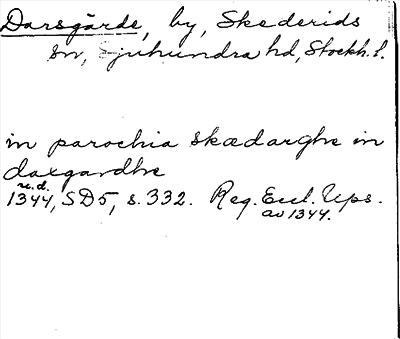 Darsgärde, by, Skederids
sn, Sjuhundra hd, Stockh. l.
in parochia skædarghe in
daxgardhe
u.d.
1344, SD5, s. 332. Reg. Eccl. Ups.
av 1344.